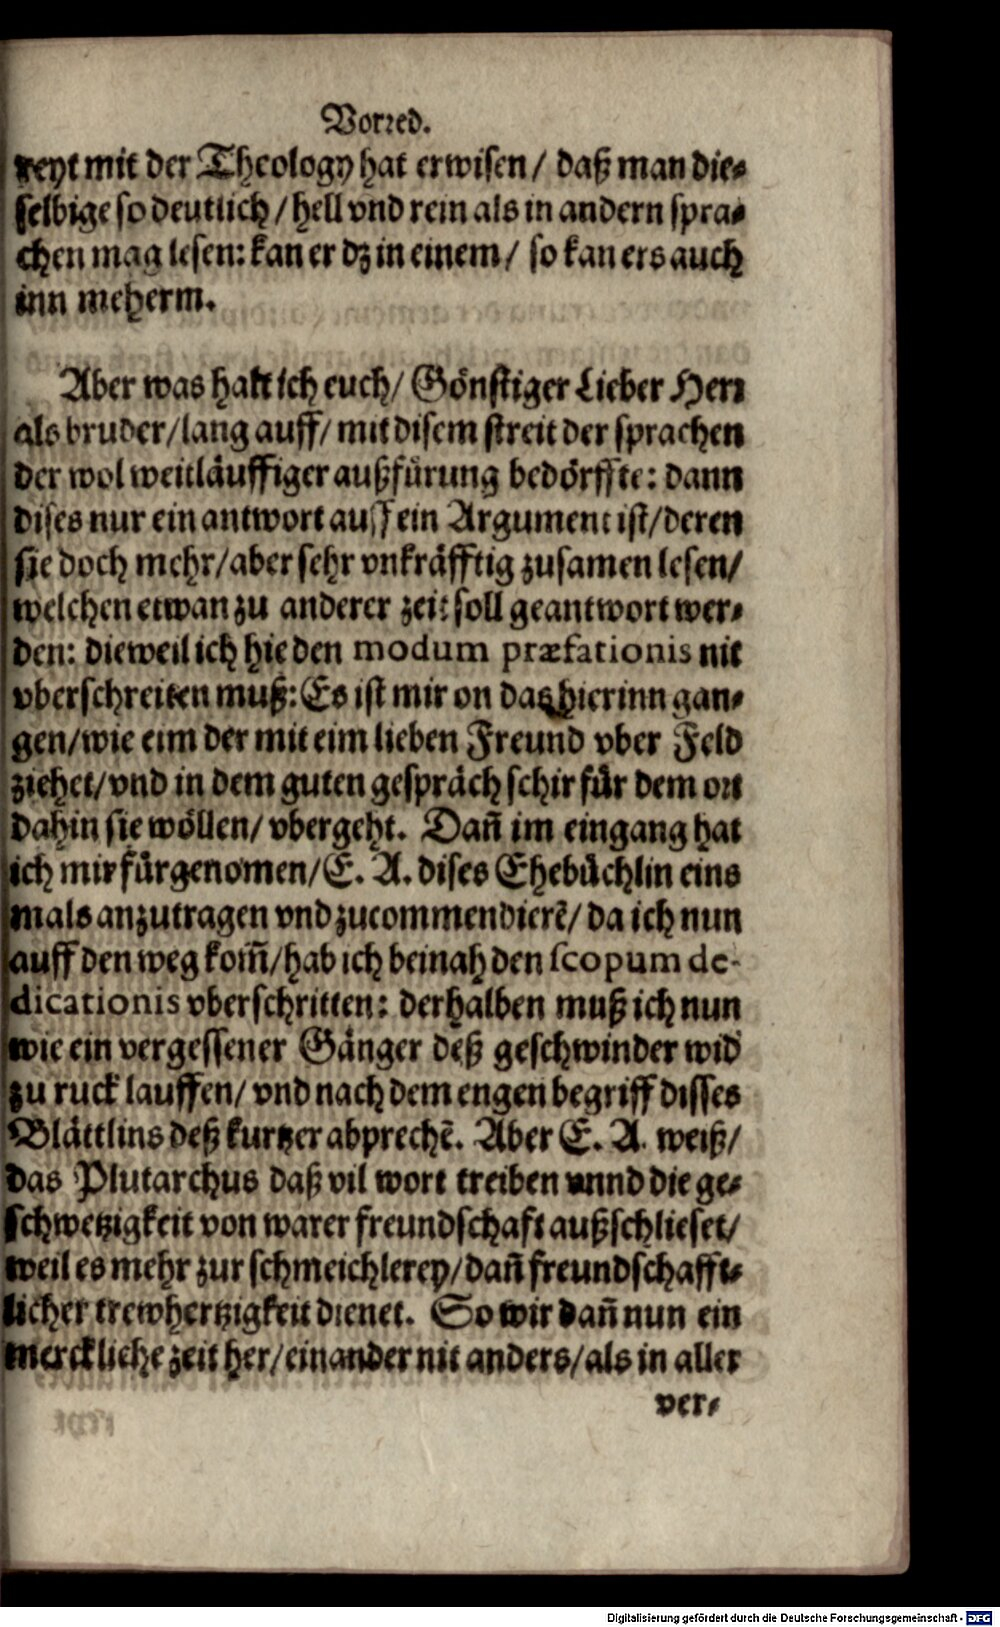 Vorred.
reyt mit der Theology hat erwisen / daß man die⸗
selbige so deutlich / hell vnd rein als in andern spra⸗
chen mag lesen: kan er dz in einem / so kan ers auch
inn meherm.
Aber was halt ich euch / Gönstiger Lieber Herr
als bruder / lang auff / mit disem streit der sprachen
der wol weitläuffiger außfürung bedörffte: dann
dises nur ein antwort auff ein Argument ist / deren
sie doch mehr / aber sehr vnkräfftig zusamen lesen /
welchen etwan zu anderer zeit soll geantwort wer⸗
den: dieweil ich hie den modum præfationis nit
vberschreiten muß: Es ist mir on das hierinn gan⸗
gen / wie eim der mit eim lieben Freund vber Feld
ziehet / vnd in dem guten gespräch schir für dem ort
dahin sie wöllen / vbergeht. Dañ im eingang hat
ich mir fürgenomen / E. A. dises Ehebüchlin eins
mals anzutragen vnd zucommendierẽ / da ich nun
auff den weg kom̃ / hab ich beinah den scopum de-
dicationis vberschritten: derhalben muß ich nun
wie ein vergessener Gänger deß geschwinder wid̕
zu ruck lauffen / vnd nach dem engen begriff disses
Blättlins deß kurtzer abprechẽ. Aber E. A. weiß /
das Plutarchus daß vil wort treiben vnnd die ge⸗
schwetzigkeit von warer freundschaft außschlieset /
weil es mehr zur schmeichlerey / dañ freundschafft⸗
licher trewhertzigkeit dienet. So wir dañ nun ein
merckliche zeit her / einander nit anders / als in aller
ver⸗
Digitalisierung gefördert durch die Deutsche Forschungsgemeinschaft - DFG